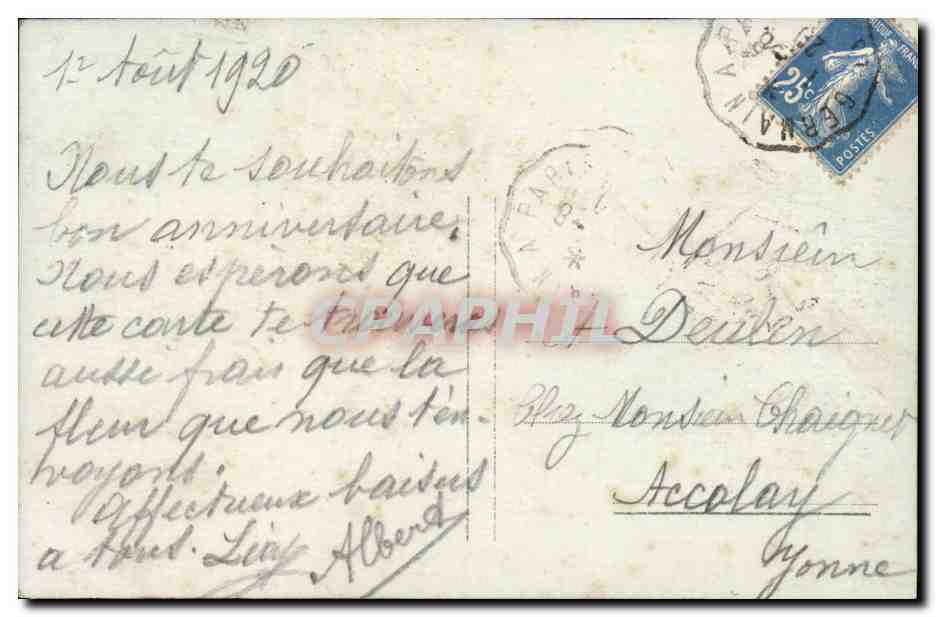 1er Août 1920
Nous te souhaitons
bon anniversaire.
Nous espérons que
cette carte te trouvera
aussi frais que la
fleur que nous t'en-
voyons.
Affectueux baisers
a tous. Léa
Albert
GERMAIN A PAR
25c
POSTES
A PARIS
CPAPHIL
Monsieur
Deuben
Chez Monsieur Chaignet
Accolay
Yonne